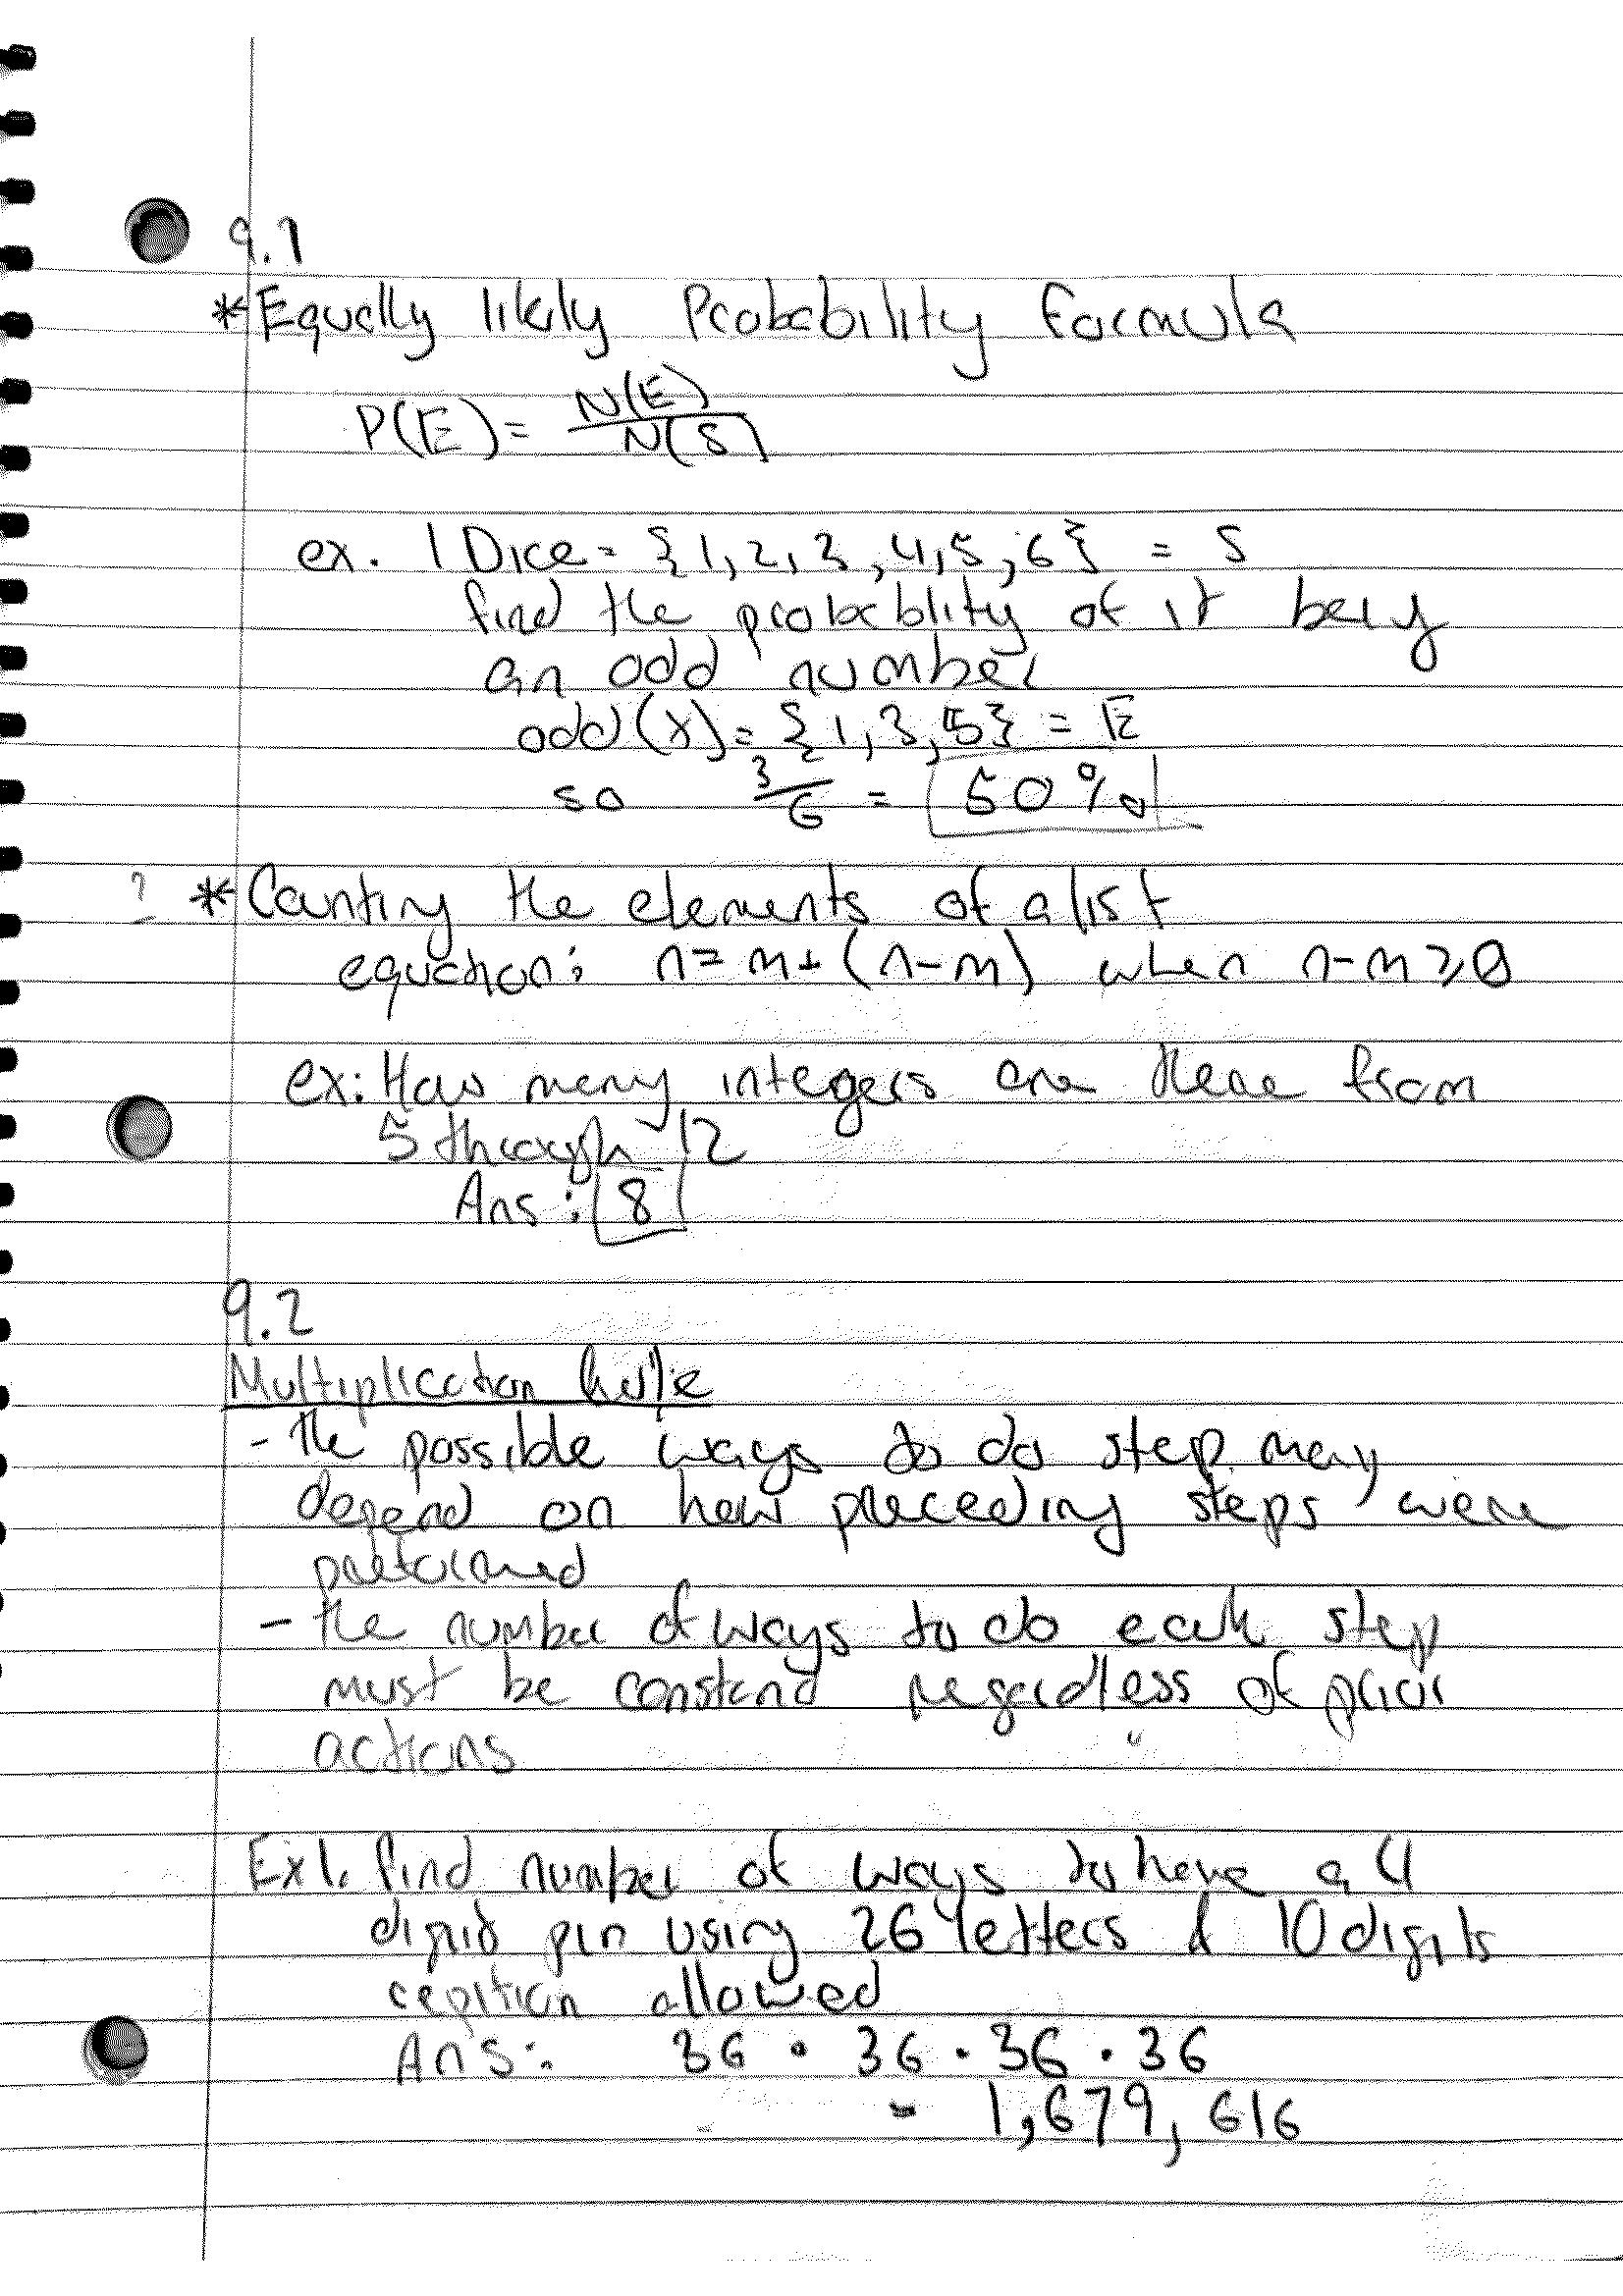 9.1
*Equally likely Probability formula
P(E) = N(E) / N(S)
ex. 1 Dice = {1, 2, 3, 4, 5, 6} = S
find the probablity of it beig
an odd number
odd(x) = {1, 3, 5} = E
so 3/6 = 50%
? *Counting the elements of a list
equation: n = m + (n-m) when n-m ≥ 0
ex: How many integers are there from
5 through 12
Ans: 8
9.2
Multiplication Rule
- the possible ways to do step may
depend on how preceding steps were
preformed
- the number of ways to do each step
must be constand regardless of prior
actions
Ex1. find number of ways to have a 4
digit pin using 26 letters & 10 digits
repition allowed
Ans: 36 · 36 · 36 · 36
= 1,679,616